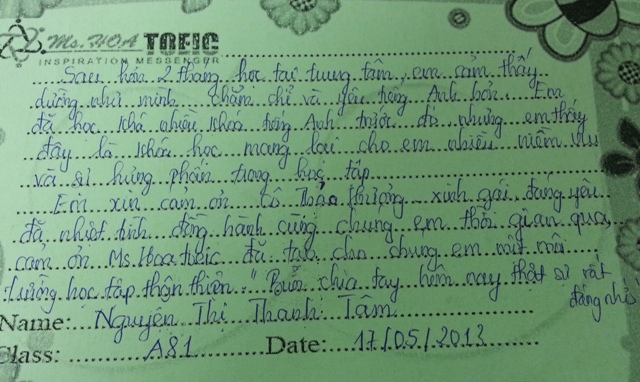 Ms. HOA TOEIC
INSPIRATION MESSENGER
Sau hơn 2 tháng học tại trung tâm, em cảm thấy
dường như mình chăm chỉ và yêu tiếng Anh hơn. Em
đã học khá nhiều khóa tiếng Anh trước đó nhưng em thấy
đây là khóa học mang lại cho em nhiều niềm vui
và sự hưng phấn trong học tập.
Em xin cảm ơn cô Thảo Phượng xinh gái, đáng yêu
đã nhiệt tình đồng hành cùng chúng em thời gian qua,
cảm ơn Ms Hoa toeic đã tạo cho chúng em một môi
trường học tập thân thiện. "Buổi chia tay hôm nay thật sự rất
đáng nhớ
Name: Nguyễn Thị Thanh Tâm
Class: A81 Date: 17/05/2013